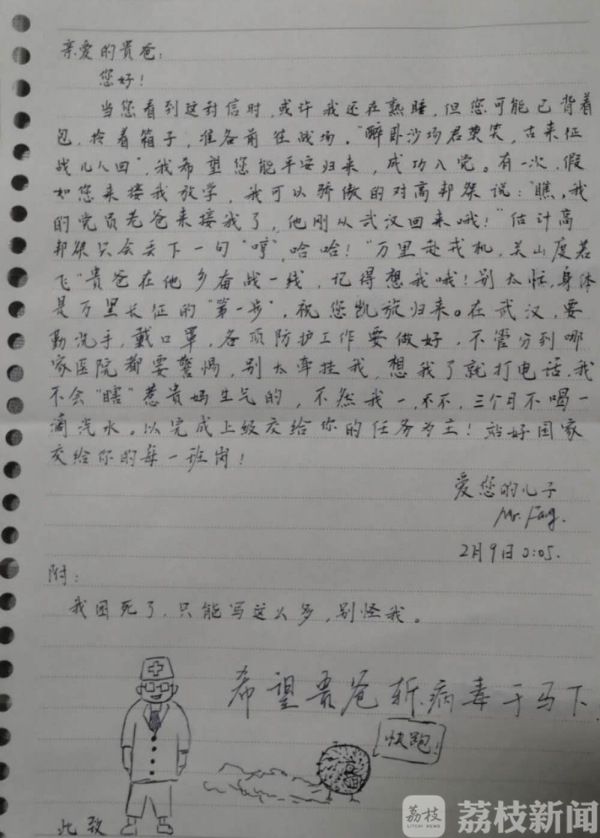 亲爱的贵爸：
您好！
当您看到这封信时，或许我还在熟睡，但您可能已背着
包，拎着箱子，准备前往战场，“醉卧沙场君莫笑，古来征
战几人回”，我希望您能平安归来，成功入党。有一次，假
如您来接我放学，我可以骄傲的对高邦燊说：“瞧，我
的党员老爸来接我了，他刚从武汉回来哦！”估计高
邦燊只会丢下一句“哼”，哈哈！“万里赴戎机，关山度若
飞”贵爸在他乡奋战一线，记得想我哦！别太忙，身体
是万里长征的“第一步”，祝您凯旋归来。在武汉，要
勤洗手，戴口罩，各项防护工作要做好，不管分到哪
家医院都要警惕，别太牵挂我，想我了就打电话，我
不会“瞎”惹贵妈生气的，不然我一，不不，三个月不喝一
滴汽水，以完成上级交给你的任务为主！站好国家
交给你的每一班岗！
爱您的儿子
Mr. Fang.
2月9日0:05.
附：
我困死了，只能写这么多，别怪我。
希望吾爸斩病毒于马下
快跑！
此致
荔枝
LITCHI NEWS
荔枝新闻